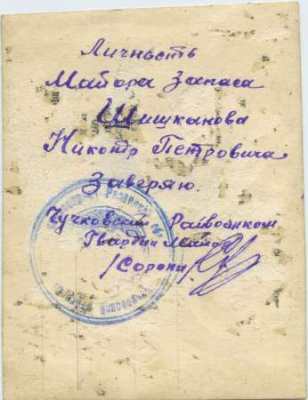 Личность
Майора Запаса
Шишканова
Никотр Петровича
Заверяю.
Чучковский Райвоенком
Гвардии Майор
/Сорокин/